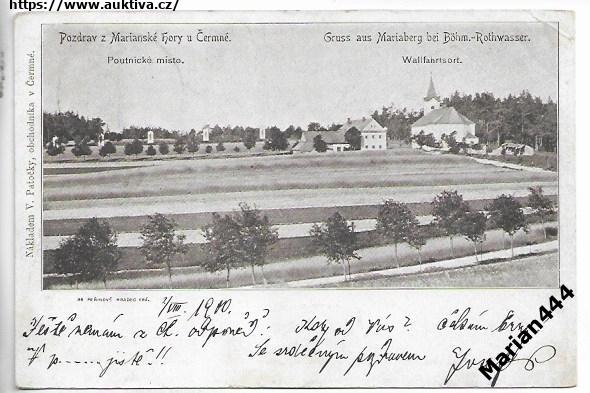 https://www.auktiva.cz/
Pozdrav z Marianské hory u Čermné.
Poutnické místo.
Gruss aus Mariaberg bei Böhm.-Rothwasser.
Wallfahrtsort.
Nákladem V. Patočky, obchodníka v Čermné.
1900.
Ještě nemám z č. odpověď!
Kdy od Vás?
jistě!!
Se srdečným pozdravem
Marian444